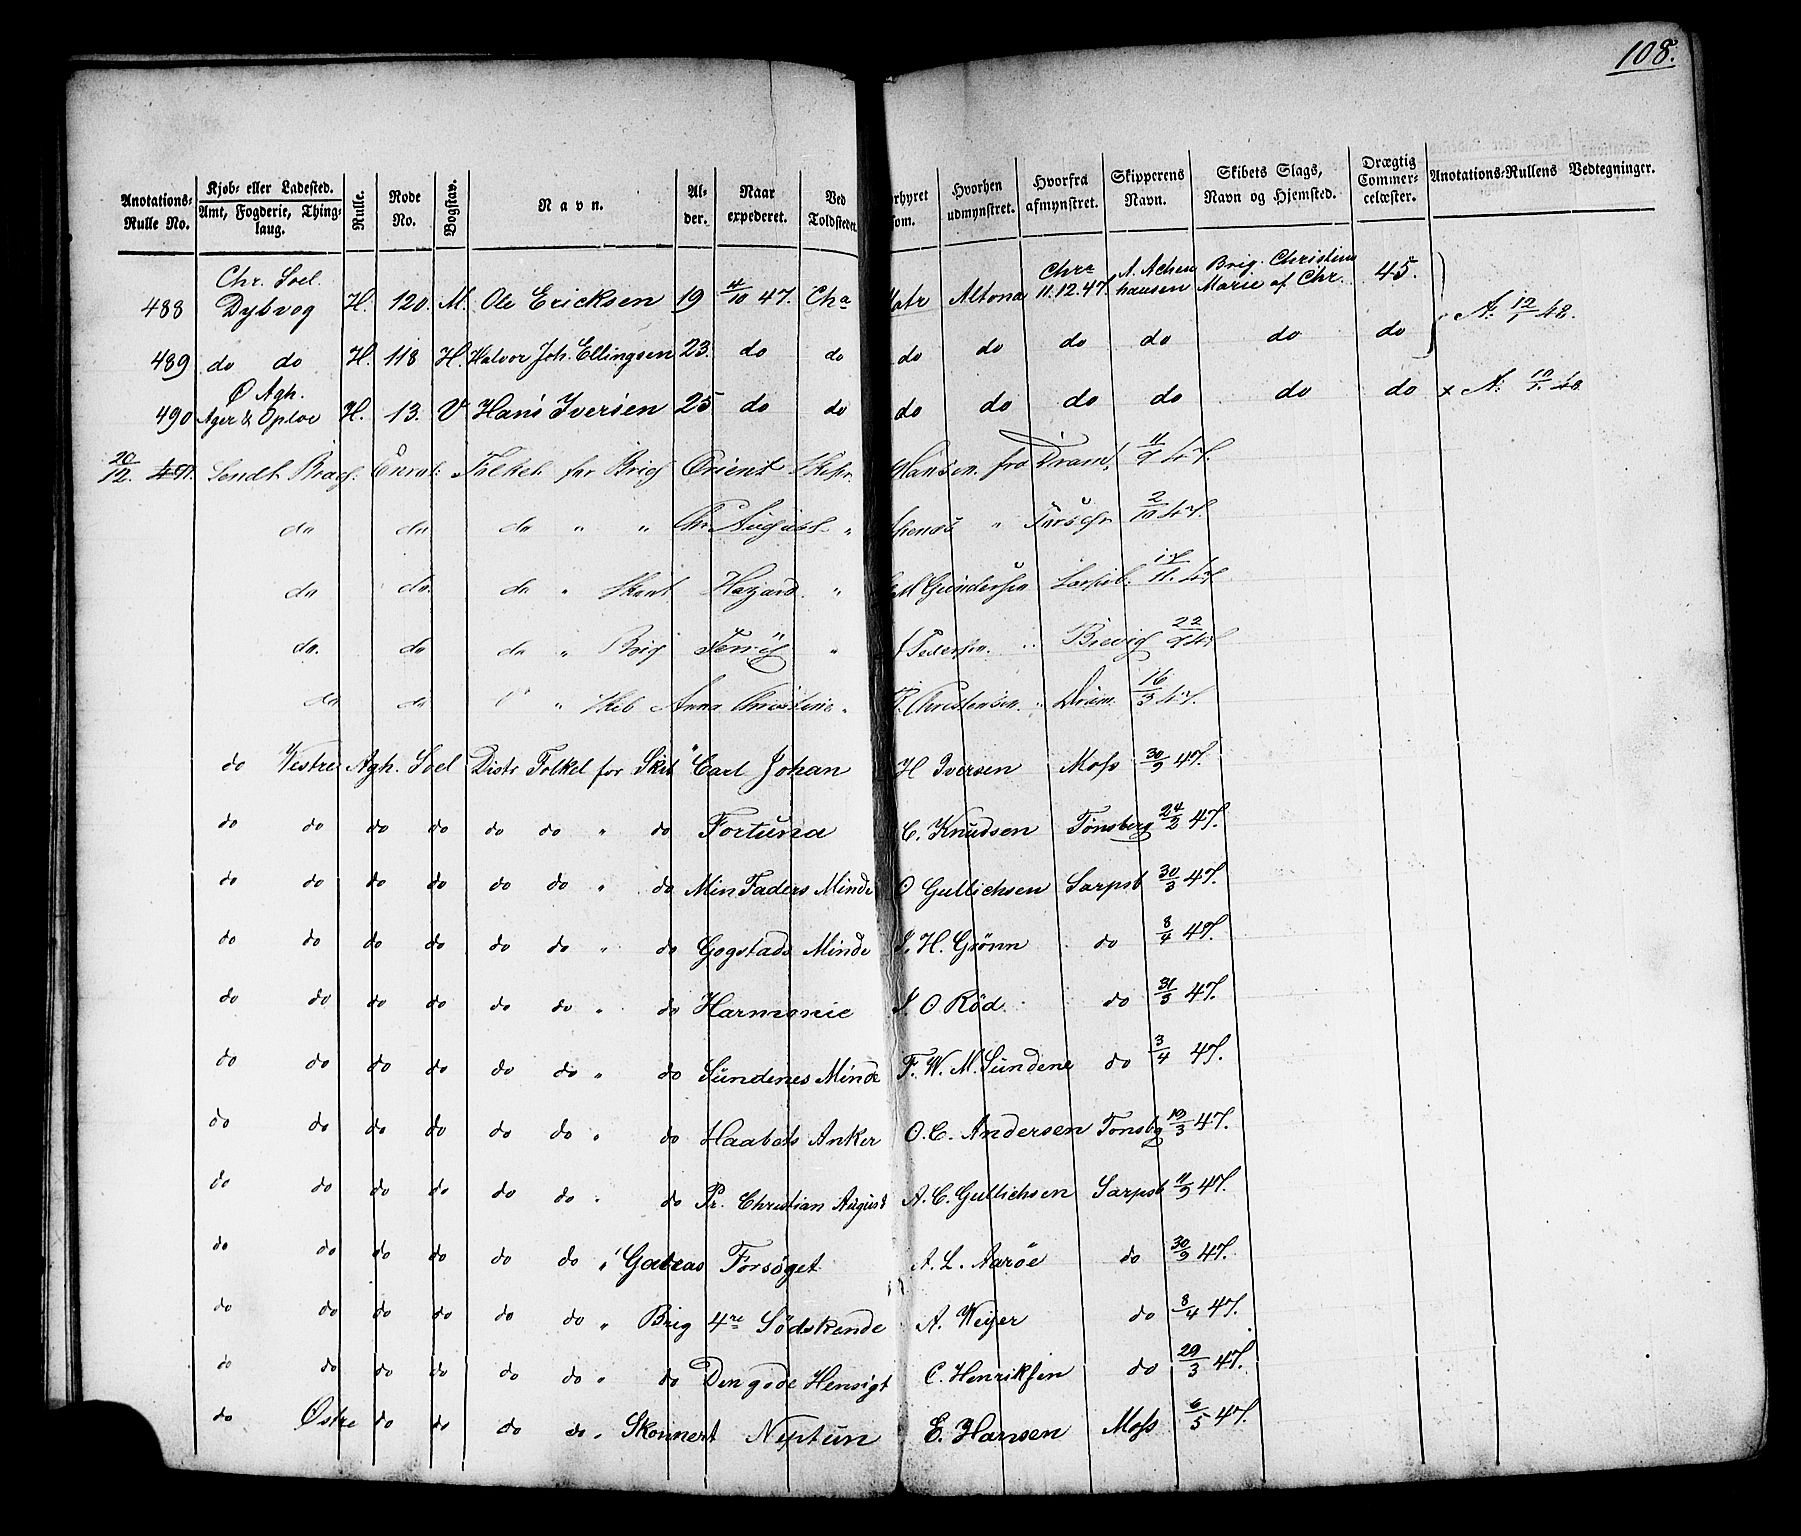 108.
Anotations-Rulle No. Kjøb- eller Ladested. Amt, Fogderie, Thinglaug. Rulle. Rode No. Bogstav. Navn. Alder. Naar expederet. Ved Toldstedet orhyret som. Hvorhen udmynstret. Hvorfra afmynstret. Skipperens Navn. Skibets Slags, Navn og Hjemsted. Drægtig Commercelæster. Anotations-Rullens Vedtegninger.
488 Chr. Soel. Dybvog H. 120. M. Ole Ericksen 19 4/10 47. Cha Matr Altona Chra 11.12.47. A. Achenhausen Brig. Christine Marie af Chr. 45. A. 12/1 48.
489 do do H. 118 H. Halvor Joh. Ellingsen 23. do do do do do do do do
490 Ø Agh. Ager & Oploe H. 13. V Hans Iversen 25 do do do do do do do do x A. 12/1 48
20/12. 491. Sendt Brag. Enrol: Folket for Brig Orient Skipr. Hansen. fra Dram, 11/9 47.
do do do " " Chr August " " 2/10 47.
do do. do " Skont Hazard " Gundersen Sarpsb. 17/11. 47
do. do do " Brig " Pedersen. " Brevig 22/9 47
do do " " Skib Anna Christine " Christensen. " Dram. 16/3 47.
do Vestre Agh. Soel Distr Folket for Skib " Carl Johan H Iversen Moss 30/9 47.
do do do do do do " do Fortuna C. Knudsen Tönsberg 24/2 47.
do do do do do do " do Min Faders Minde O Gullichsen Sarpsb 30/3 47.
do do do do do do " do Gogstads Minde I. H. Grönn do 8/4 47.
do do do do do do " do Harmonie I. O Röd. do 31/3 47.
do do do do do do " do Sundenes Minde F. W. M. Sundene do 3/4 47.
do do do do do do " do Haabets Anker O. C. Andersen Tonsbg 19/3 47.
do do do do do do " do Pr. Christian August A. C. Gullichsen Sarpsb 11/9 47.
do do do do do do " Galeas Forsöget A. L. Aaröe do 30/9 47.
do do do do do do " Brig 4re Södskende A. Weyer do 8/4 47.
do do do do do do " do Den gode Hensigt C. Henriksen do 29/3 47.
do Østre do do do do " Skonnert Neptun E. Hansen Moss 6/5 47.